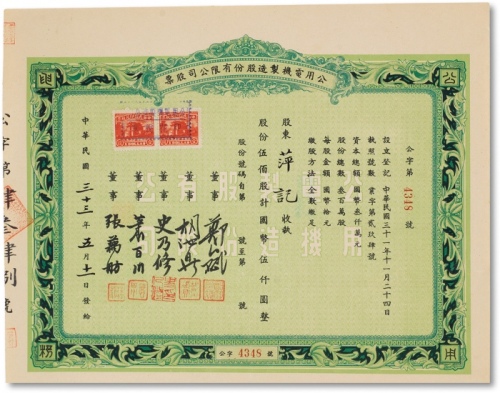 公用電機製造股份有限公司股票
公字第 4348 號
設立登記 中華民國三十一年十一月二十四日
執照號數 業字第貳玖肆號
資本總額 國幣叁仟萬元
股份總數 叁百萬股
每股金額 國幣拾元
繳股方法 全數繳足
股東 萍記 收執
股份伍佰股計國幣伍仟圓整
股份號碼自第 號至第 號
董事
董事 胡
董事 史乃修
董事
董事 張萬舫
中華民國 三十三年 五月十一日發給
公字 4348 號
公
用
股份有
製造
機
公司